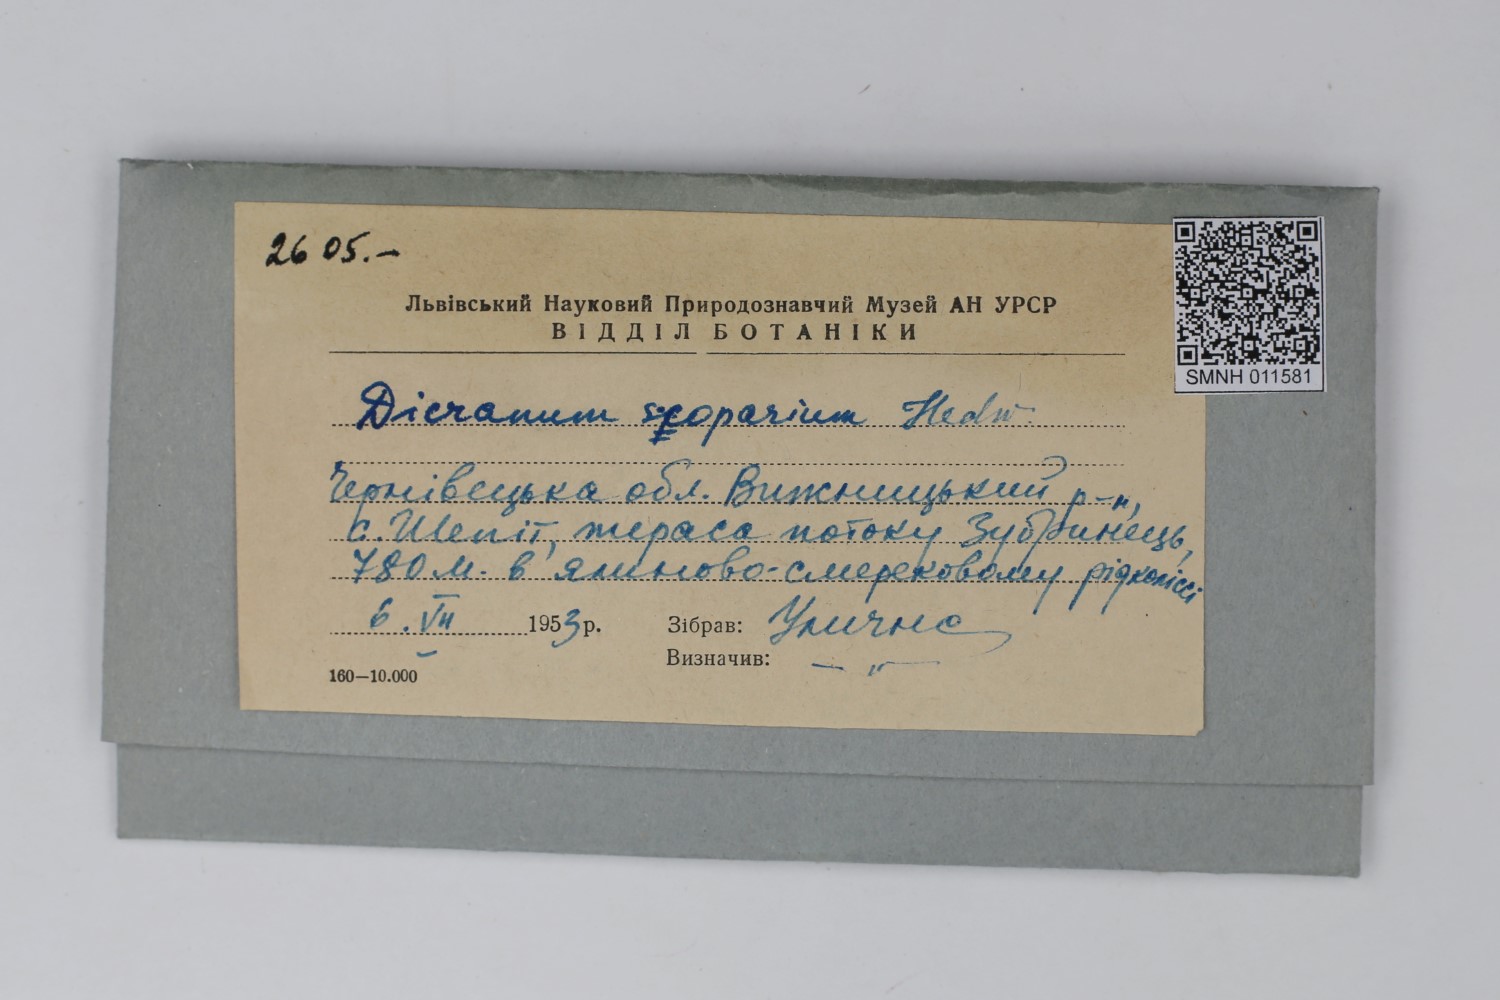 2605.-
Львівський Науковий Природознавчий Музей АН УРСР
ВІДДІЛ БОТАНІКИ
SMNH 011581
Dicranum scoparium Hedw.
Чернівецька обл. Вижницький р-н,
с. Шепіт, тераса потоку Зубринець,
780 м. в ялиново-смерековому рідколіссі
6. VII 1953 р. Зібрав: Улична
Визначив: — " —
160—10.000